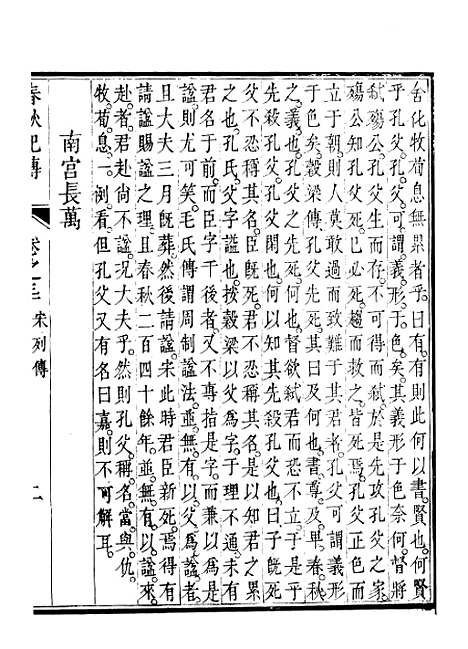 舍仇牧荀息無累者乎。曰有。有則此何以書。賢也。何賢
乎孔父。孔父可謂義形于色矣。其義形于色奈何。督將
弒殤公。孔父生而存。不可得而弒。於是先攻孔父之家。
殤公知孔父死。己必死。趨而救之。皆死焉。孔父正色而
立于朝。則人莫敢過而致難于其君者。孔父可謂義形
于色矣。穀梁傳。孔父先死。其曰及何也。書尊及卑。春秋
之義也。孔父之先死何也。督欲弒君而恐不立。于是乎
先殺孔父。孔父閑也。何以知其先殺孔父也。曰子既死
父不忍稱其名。臣既死君不忍稱其名。是以知君之累
之也。孔氏。父字謚也。按穀梁以父爲字。于理不通。未有
君名于前。而臣字于後者。又不專指是字。而兼以爲是
謚。則尤可笑。毛氏傳謂周制謚法。並無有以父爲謚者。
且大夫三月既葬。然後請謚。未此時君臣新死。焉得有
請謚賜謚之理。且春秋二百四十餘年。並無有以謚來
赴者。君赴尚不謚。况大夫乎。然則孔父。稱名。當與仇
牧荀息。一例看。但孔父又有名曰嘉。則不可解耳。
南宮長萬
春秋紀傳
卷之三 宋列傳
二